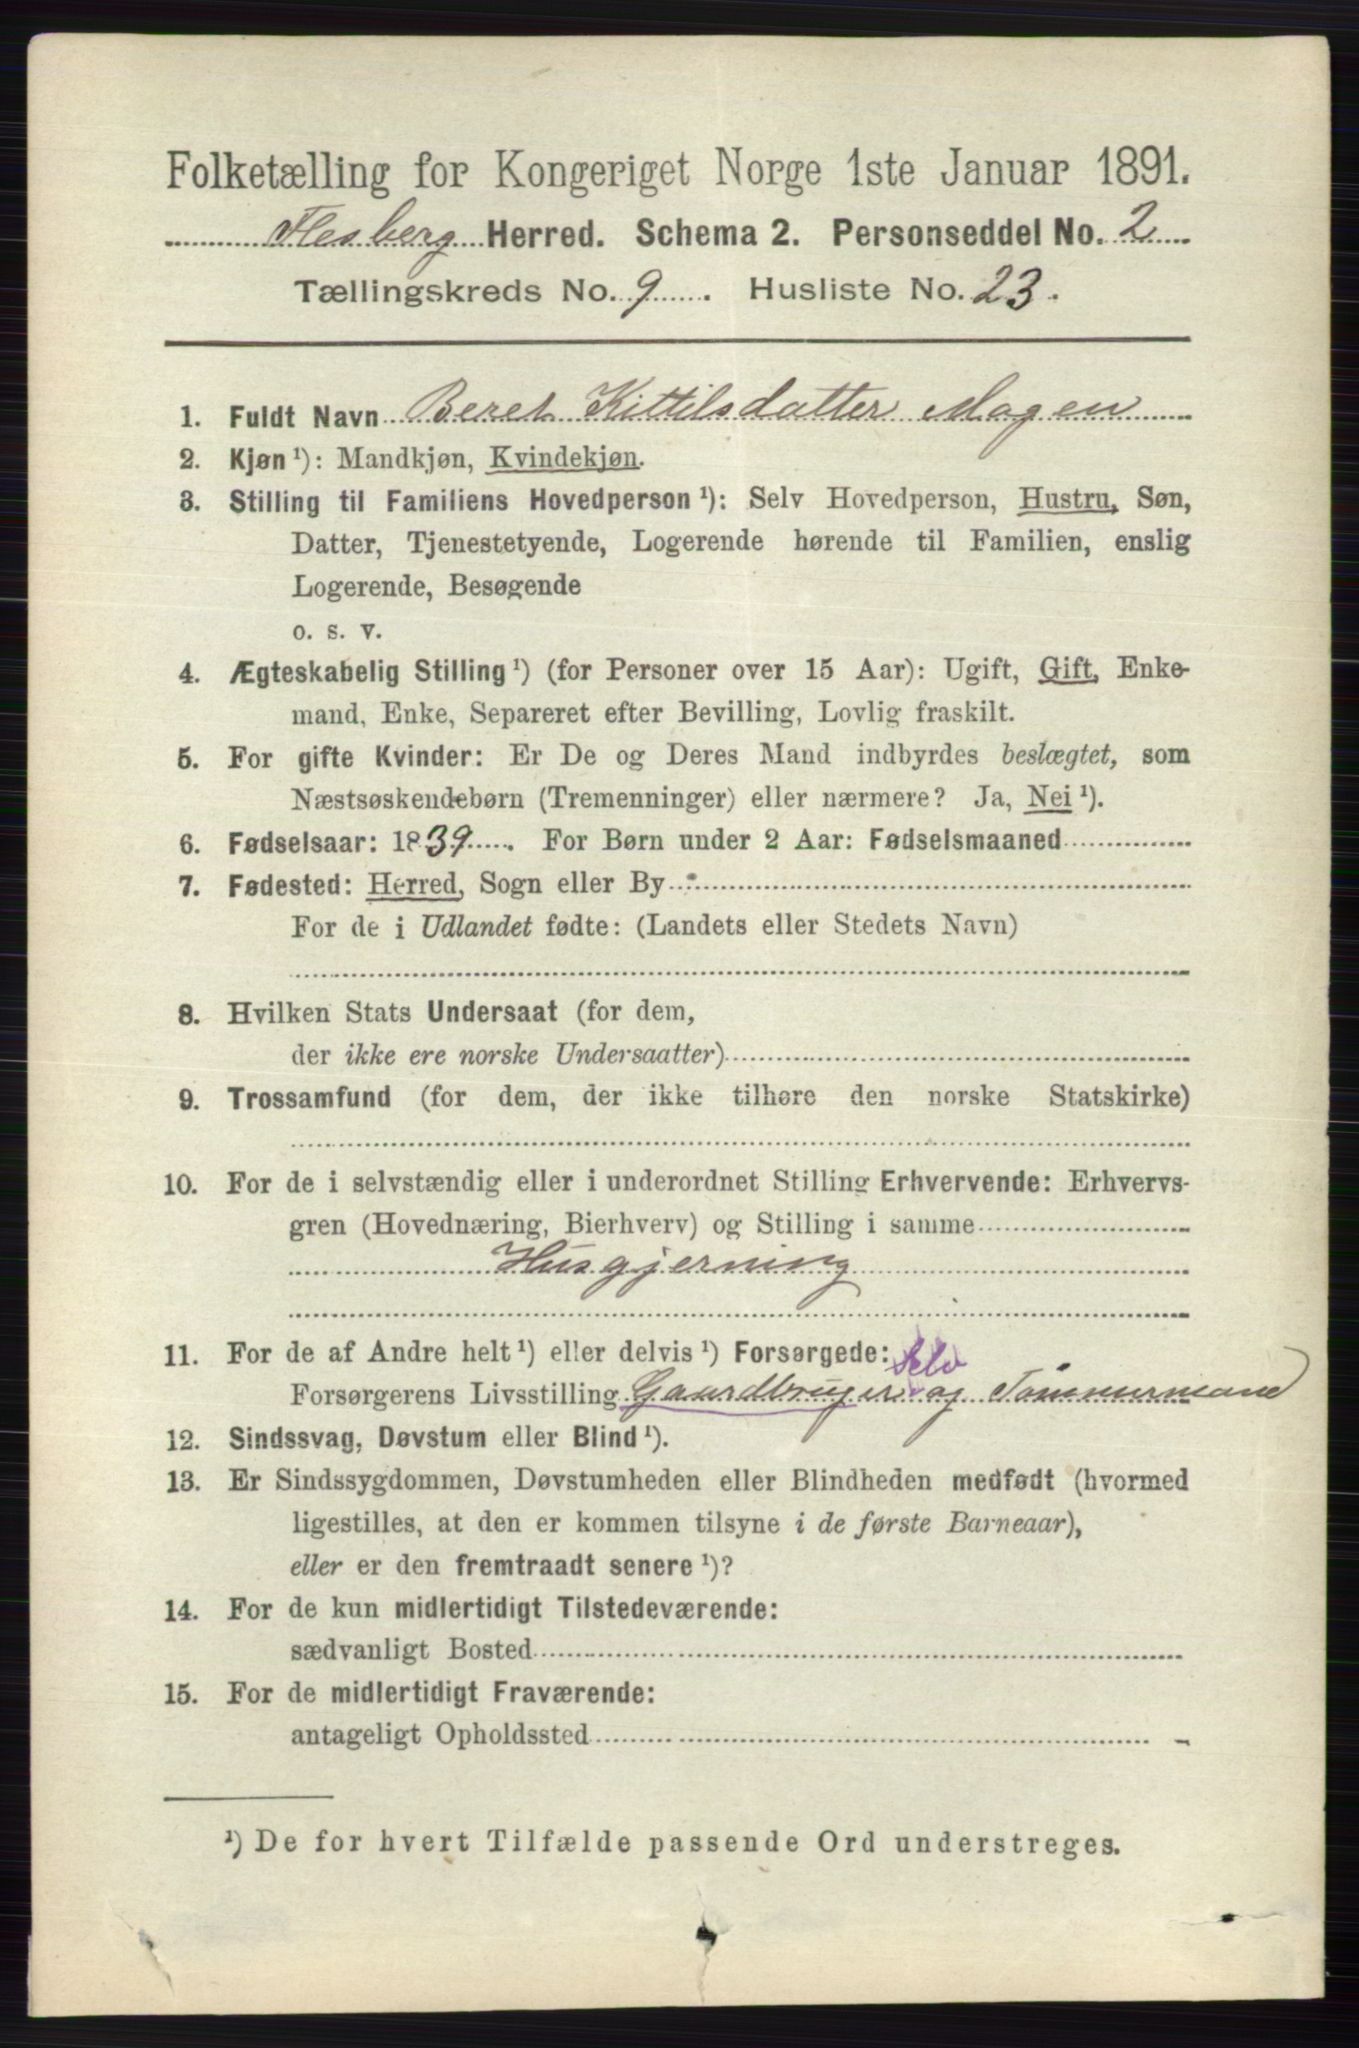 Folketælling for Kongeriget Norge 1ste Januar 1891.
Flesberg Herred. Schema 2. Personseddel No. 2
Tællingskreds No. 9. Husliste No. 23.
1. Fuldt Navn Beret Kittilsdatter Mogen
2. Kjøn ¹): Mandkjøn, Kvindekjøn.
3. Stilling til Familiens Hovedperson ¹): Selv Hovedperson, Hustru, Søn,
Datter, Tjenestetyende, Logerende hørende til Familien, enslig
Logerende, Besøgende
o. s. v.
4. Ægteskabelig Stilling ¹) (for Personer over 15 Aar): Ugift, Gift, Enke-
mand, Enke, Separeret efter Bevilling, Lovlig fraskilt.
5. For gifte Kvinder: Er De og Deres Mand indbyrdes beslægtet, som
Næstsøskendebørn (Tremenninger) eller nærmere? Ja, Nei ¹).
6. Fødselsaar: 1839. For Børn under 2 Aar: Fødselsmaaned
7. Fødested: Herred, Sogn eller By
For de i Udlandet fødte: (Landets eller Stedets Navn)
8. Hvilken Stats Undersaat (for dem,
der ikke ere norske Undersaatter)
9. Trossamfund (for dem, der ikke tilhøre den norske Statskirke)
10. For de i selvstændig eller i underordnet Stilling Erhvervende: Erhvervs-
gren (Hovednæring, Bierhverv) og Stilling i samme
Husgjerning
11. For de af Andre helt ¹) eller delvis ¹) Forsørgede: Selv
Forsørgerens Livsstilling Gaardbruger og Tömmermand
12. Sindssvag, Døvstum eller Blind ¹).
13. Er Sindssygdommen, Døvstumheden eller Blindheden medfødt (hvormed
ligestilles, at den er kommen tilsyne i de første Barneaar),
eller er den fremtraadt senere ¹)?
14. For de kun midlertidigt Tilstedeværende:
sædvanligt Bosted
15. For de midlertidigt Fraværende:
antageligt Opholdssted
¹) De for hvert Tilfælde passende Ord understreges.